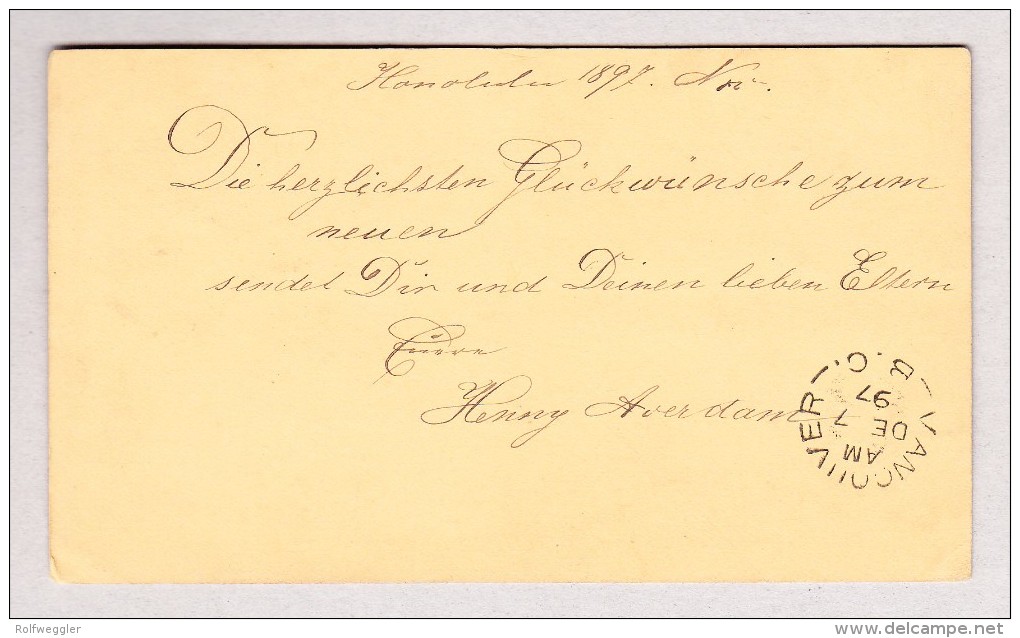 Honolulu 1897. Nov.
Die herzlichsten Glückwünsche zum
neuen
sendet Dir und Deinen lieben Eltern
Euere
Henny Averdam
VANCOUVER B.C.
AM
DE 7
97
Rolfweggler
delcampe.net